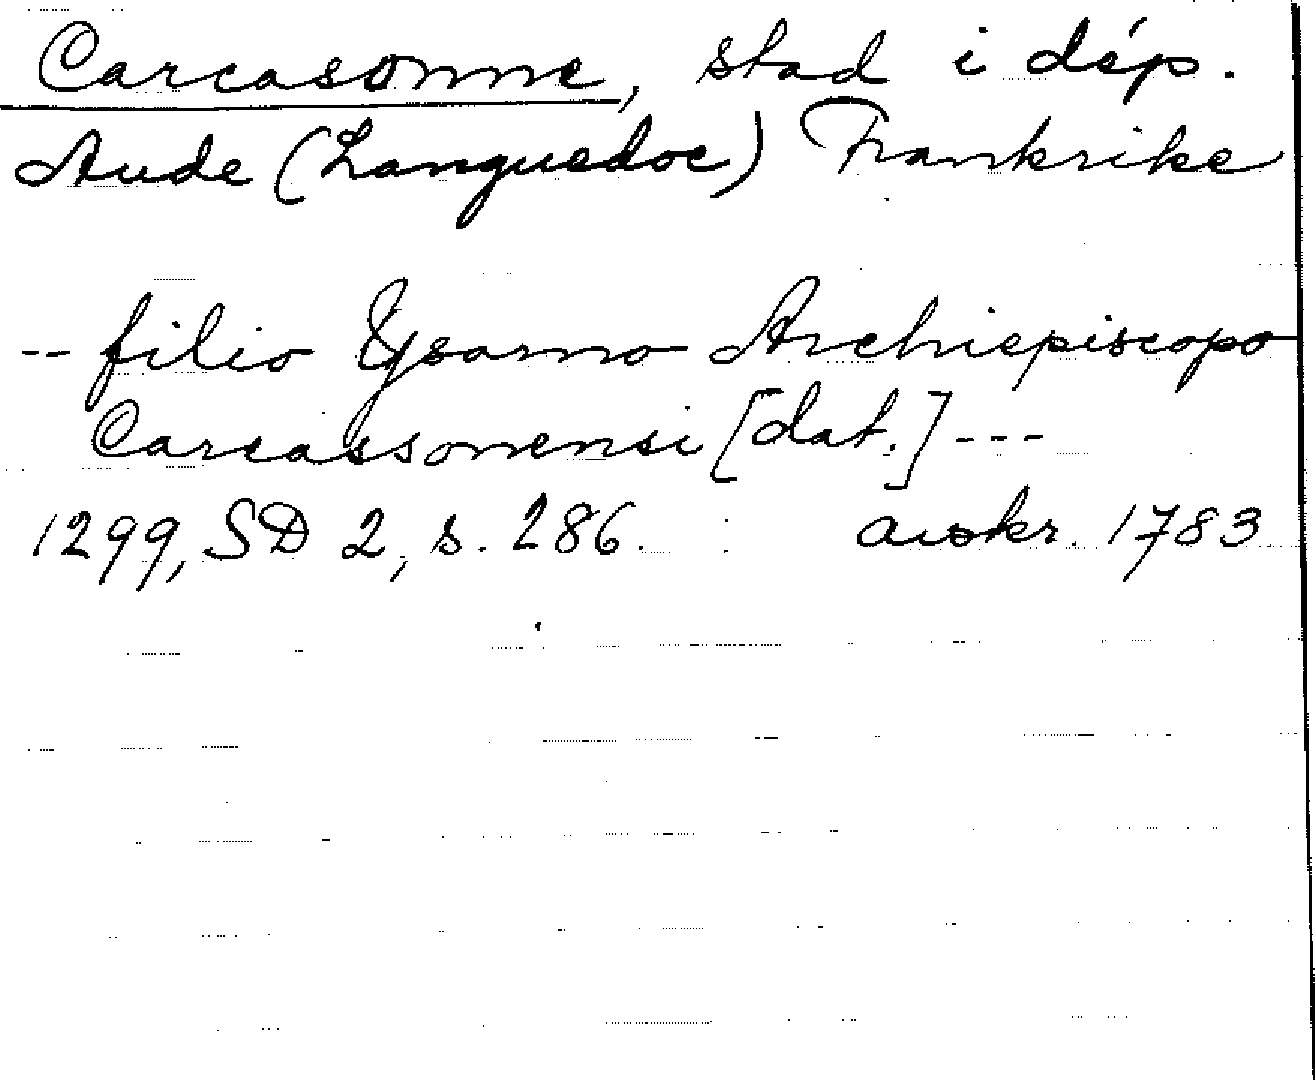 Carcasonne, stad i dép.
Aude (Languedoc) Frankrike
-- filio Ysarno Archiepiscopo
Carcassonensi [dat.] ---
1299, SD 2, s. 286. avskr. 1783